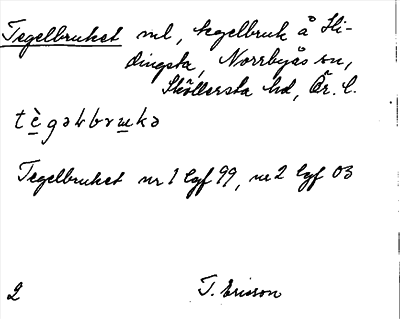 Tegelbruket ml, tegelbruk å Hi-
dingsta, Norrbyås sn,
Sköllersta hd, Ör. l.
tègəlbrʉkə
Tegelbruket nr 1 lgf 99, nr 2 lgf 03
2 T. Ericson